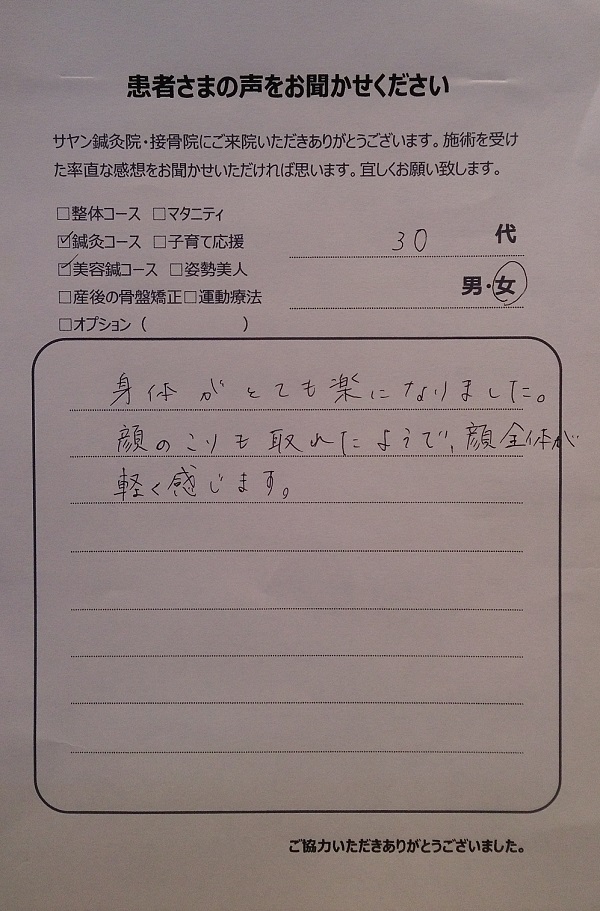 患者さまの声をお聞かせください
サヤン鍼灸院・接骨院にご来院いただきありがとうございます。施術を受け
た率直な感想をお聞かせいただければ思います。宜しくお願い致します。
□整体コース □マタニティ
☑鍼灸コース □子育て応援
☑美容鍼コース □姿勢美人
□産後の骨盤矯正□運動療法
□オプション（ ）
30 代
男・女
身体がとても楽になりました。
顔のこりも取れたようで、顔全体が
軽く感じます。
ご協力いただきありがとうございました。